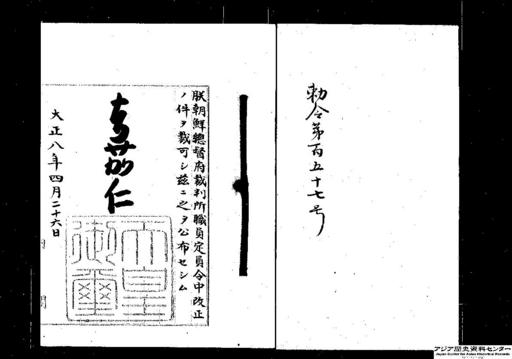 勅令第百五十七号
朕朝鮮總督府裁判所職員定員令中改正
ノ件ヲ裁可シ茲ニ之ヲ公布セシム
嘉仁
天皇御璽
大正八年四月二十六日
アジア歴史資料センター
Japan Center for Asian Historical Records